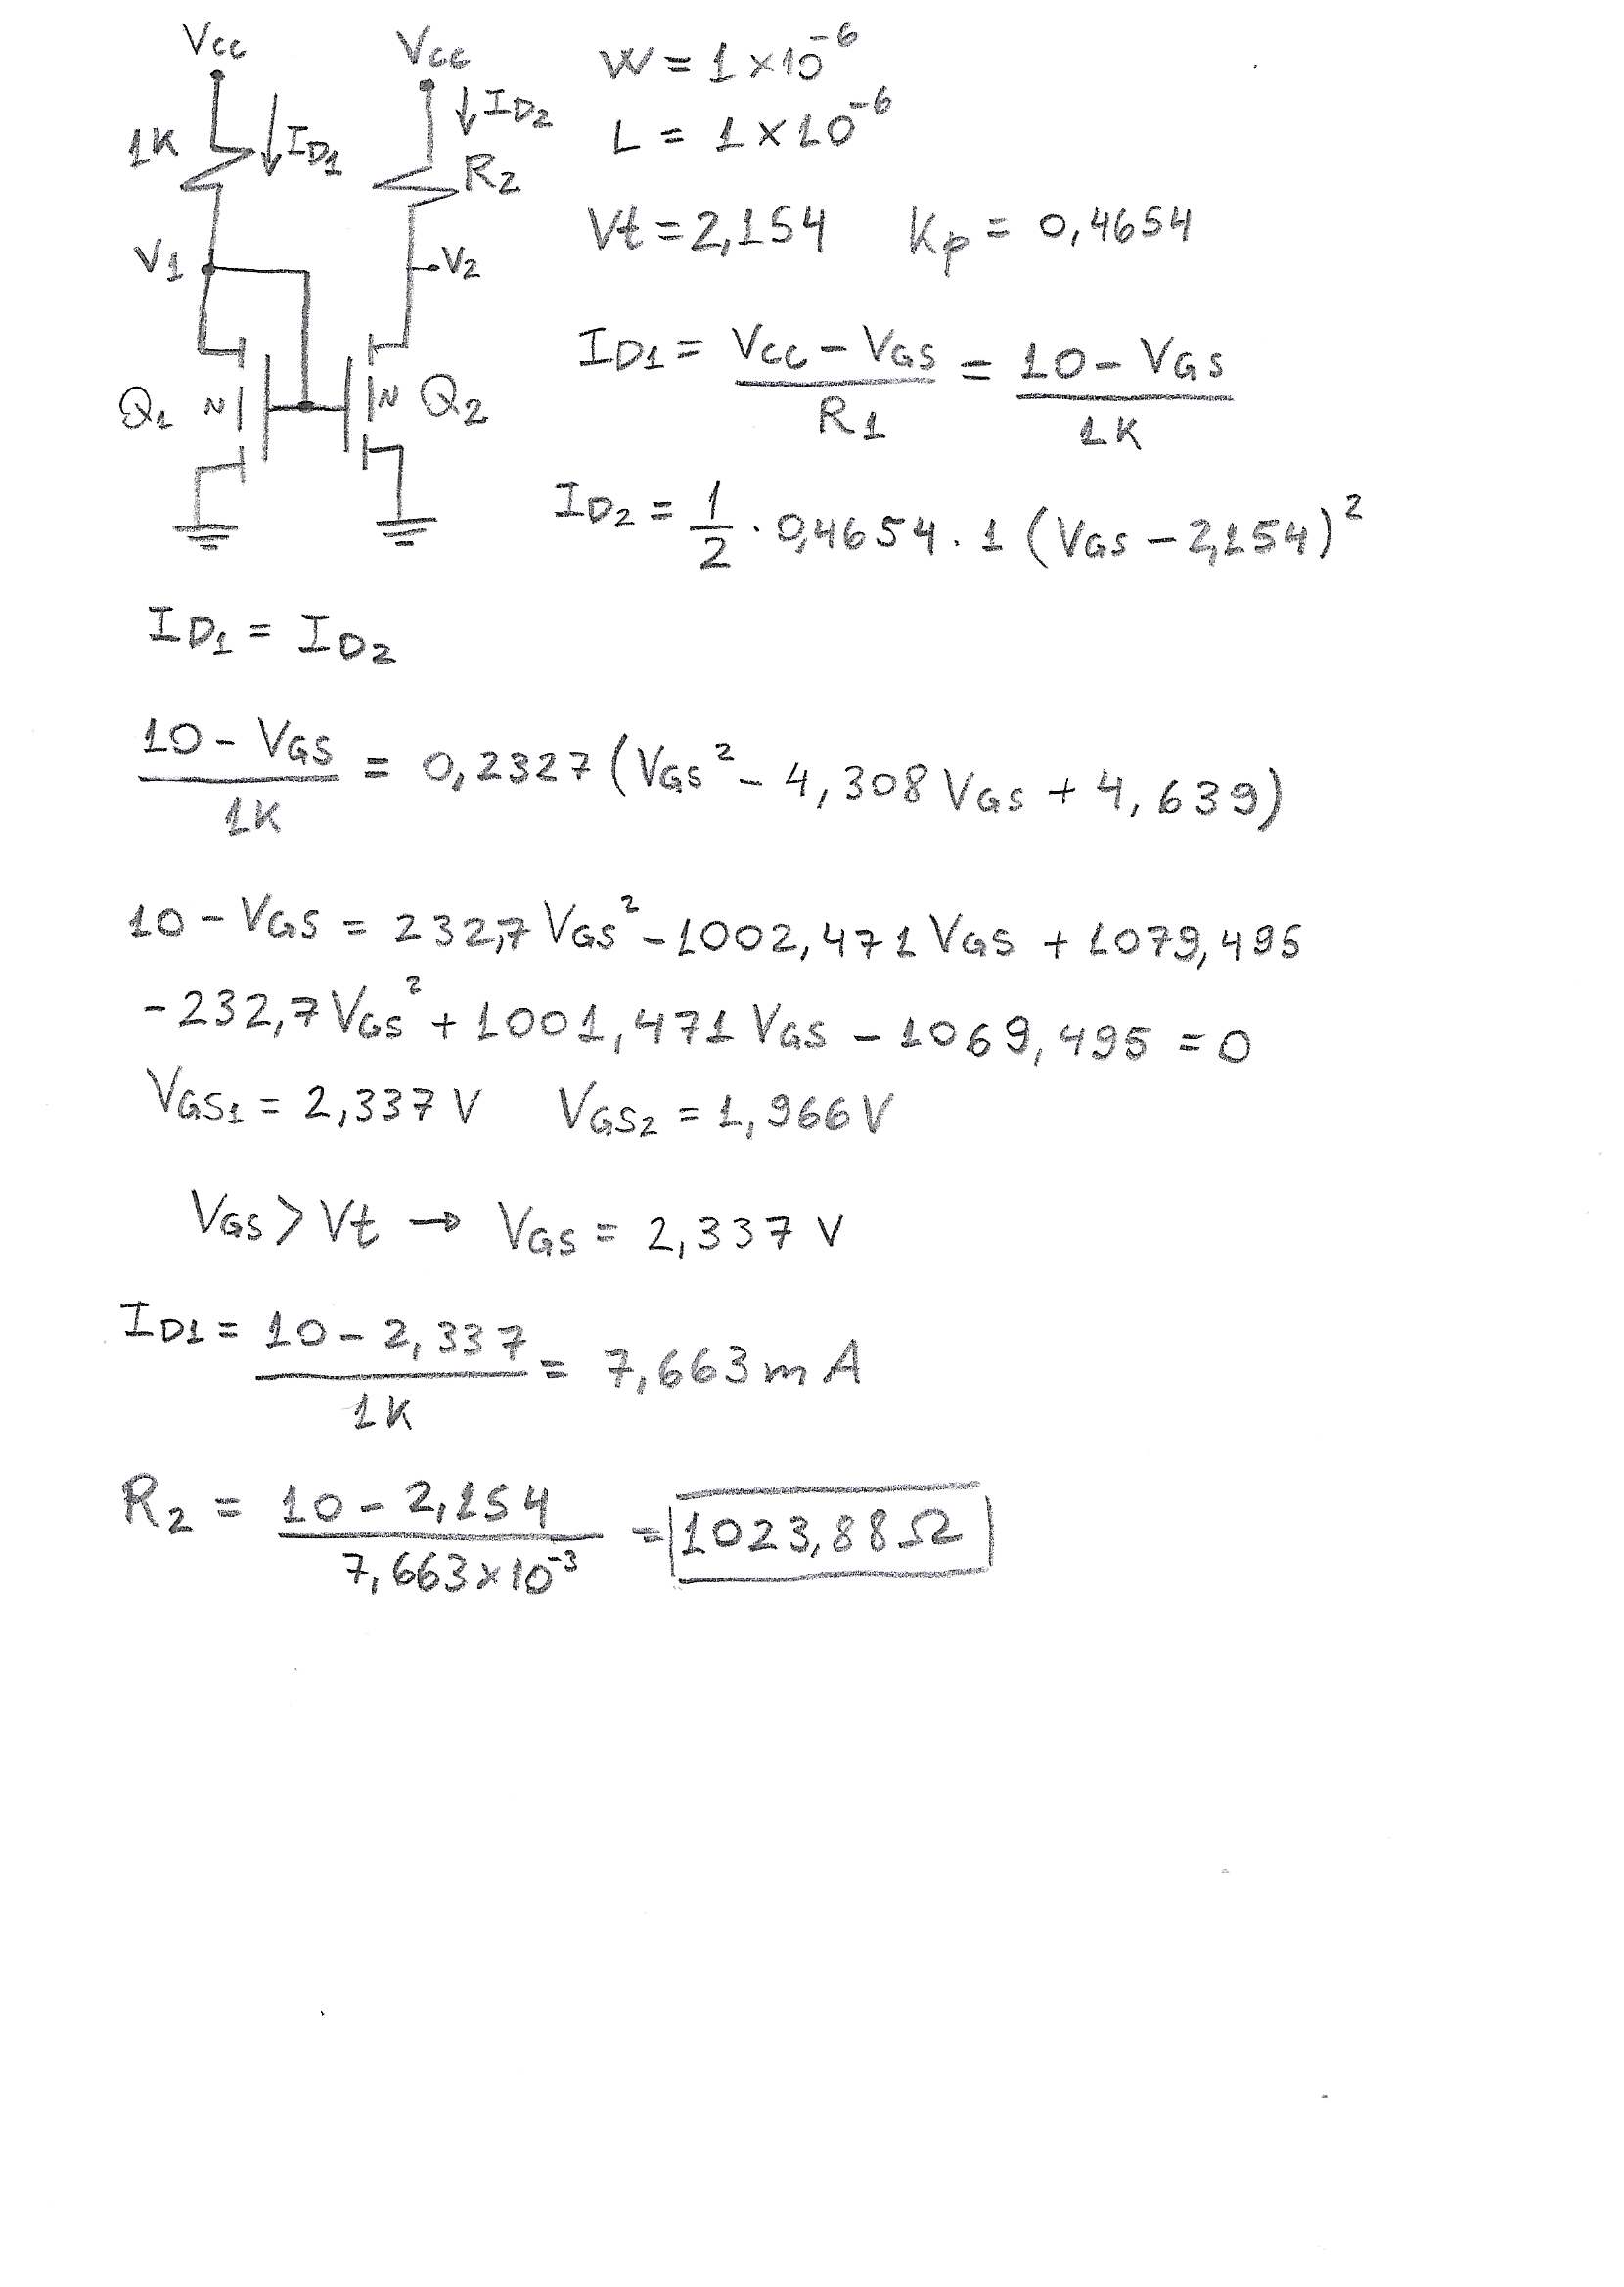 Vcc Vcc W = 1 ×10⁻⁶
1K I_D1 I_D2 L = 1 × 10⁻⁶
R2
V1 V2 Vt = 2,154 Kp = 0,4654
I_D1 = (Vcc - V_GS) / R1 = (10 - V_GS) / 1K
Q1 N N Q2
I_D2 = 1/2 · 0,4654 · 1 (V_GS - 2,154)²
I_D1 = I_D2
(10 - V_GS) / 1K = 0,2327 (V_GS² - 4,308 V_GS + 4,639)
10 - V_GS = 232,7 V_GS² - 1002,471 V_GS + 1079,495
-232,7 V_GS² + 1001,471 V_GS - 1069,495 = 0
V_GS1 = 2,337 V V_GS2 = 1,966 V
V_GS > Vt → V_GS = 2,337 V
I_D1 = (10 - 2,337) / 1K = 7,663 mA
R2 = (10 - 2,154) / 7,663×10⁻³ = 1023,88 Ω